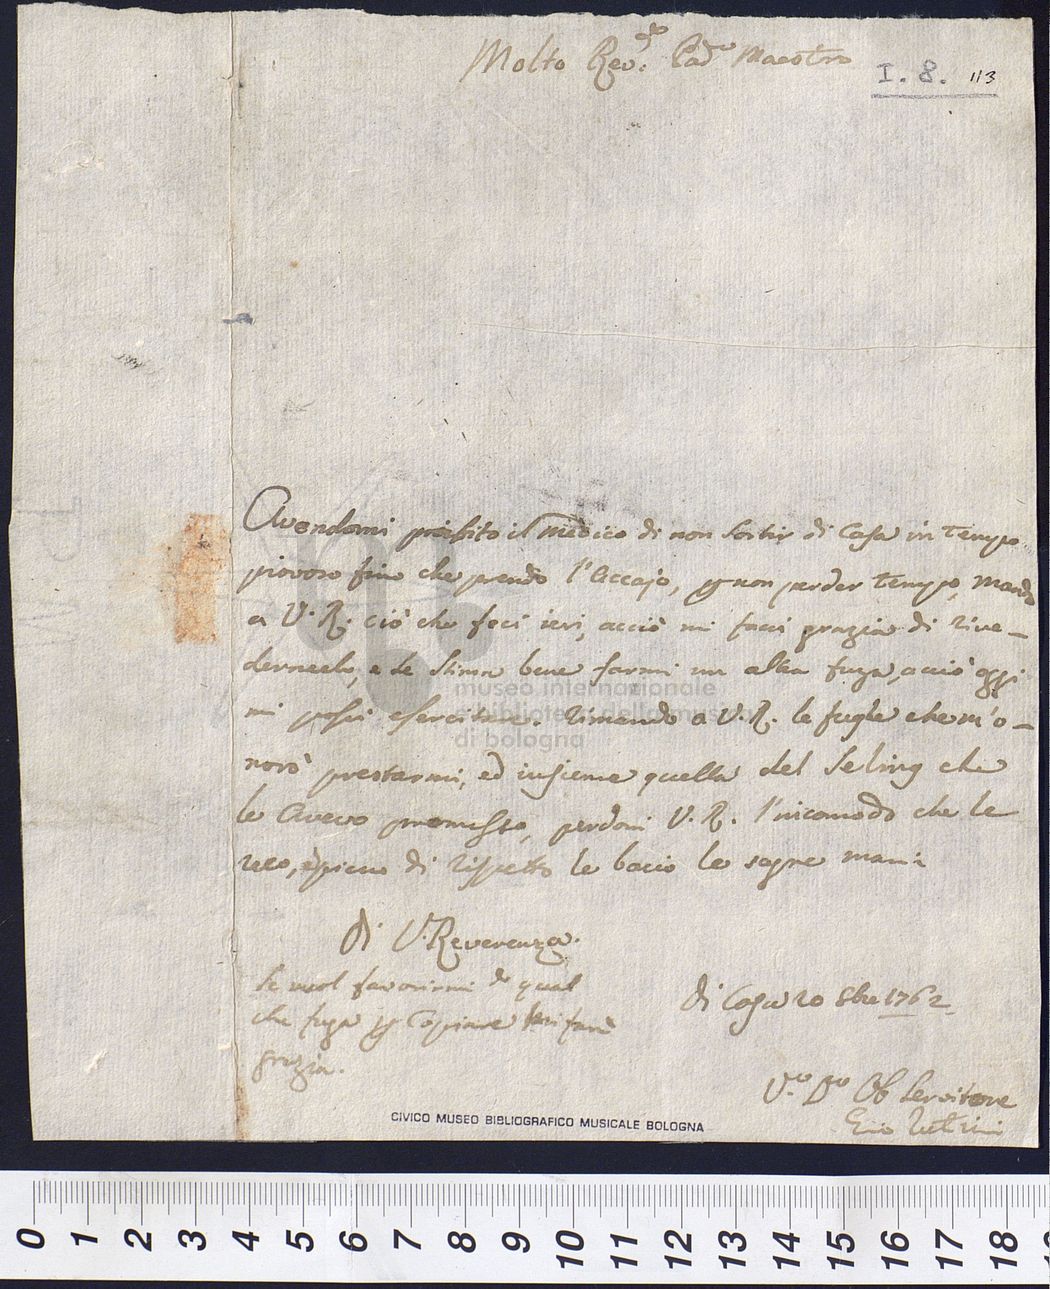 Molto Rev.do Pad.o Maestro
I. 8. 113
Avendomi proibito il Medico di non sortir di Casa in tempo
piovoso fino che prendo l'Acciajo, p non perder tempo, mando
a V. R. ciò che feci ieri, acciò mi facci grazia di rive-
dermelo, e se stima bene farmi un altra fuga, acciò oggi
mi possi esercitare. Rimando a V. R. le fughe che m'o-
norò prestarmi, ed insieme quella del Seling che
le avevo promesso, perdoni V. R. l'incomodo che le
reco, e pieno di rispetto le bacio le sagre mani
di V. Reverenza.
Se vuol favorirmi di qual
che fuga p Copiare mi farà
grazia.
di Casa 20 8bre 1762
V.o D.o Ob Servitore
museo internazionale
e biblioteca della musica
di bologna
CIVICO MUSEO BIBLIOGRAFICO MUSICALE BOLOGNA
0 1 2 3 4 5 6 7 8 9 10 11 12 13 14 15 16 17 18